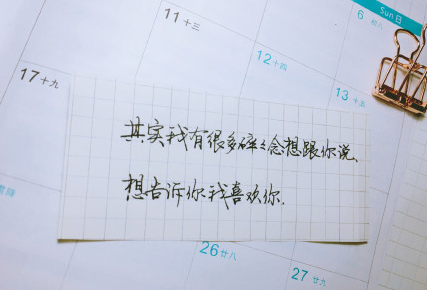 Sun 日
6 初八
11 十三
12 十四
13 十五
17 十九
其实我有很多碎々念想跟你说、
想告诉你我喜欢你.
26 廿八
27 廿九